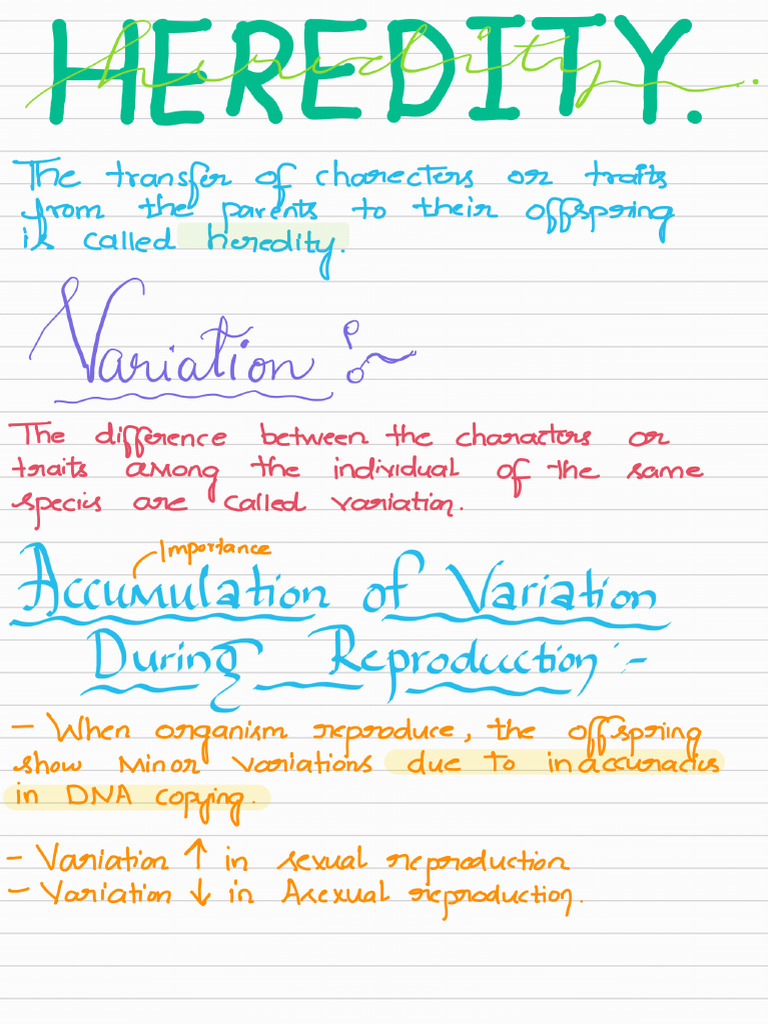 HEREDITY.
heredity.
The transfer of charecters or traits
from the parents to their offspring
is called heredity.
Variation :~
The difference between the characters or
traits among the individual of the same
specis are called variation.
Importance
Accumulation of Variation
During Reproduction :-
- When organism reproduce, the offspring
show minor variations due to inaccuracies
in DNA copying.
- Variation ↑ in sexual reproduction
- Variation ↓ in Asexual reproduction.